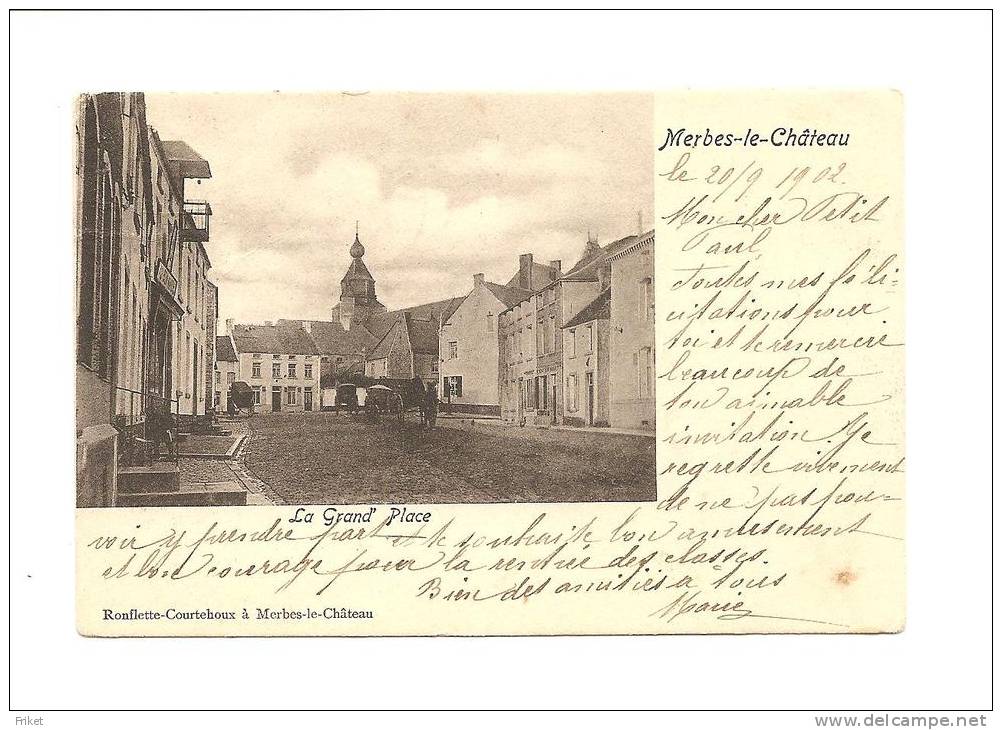 Merbes-le-Château
le 20/9 1902.
Mon cher Petit
Paul
Toutes mes féli-
citations pour
toi et te remercie
beaucoup de
ton aimable
invitation. Je
regrette vivement
de ne pas pou-
La Grand' Place
voir y prendre part et te souhaite bon amusement
et bon courage pour la rentrée des classes.
Bien des amitiés à tous
Marie
Ronflette-Courtehoux à Merbes-le-Château
Friket
www.delcampe.net